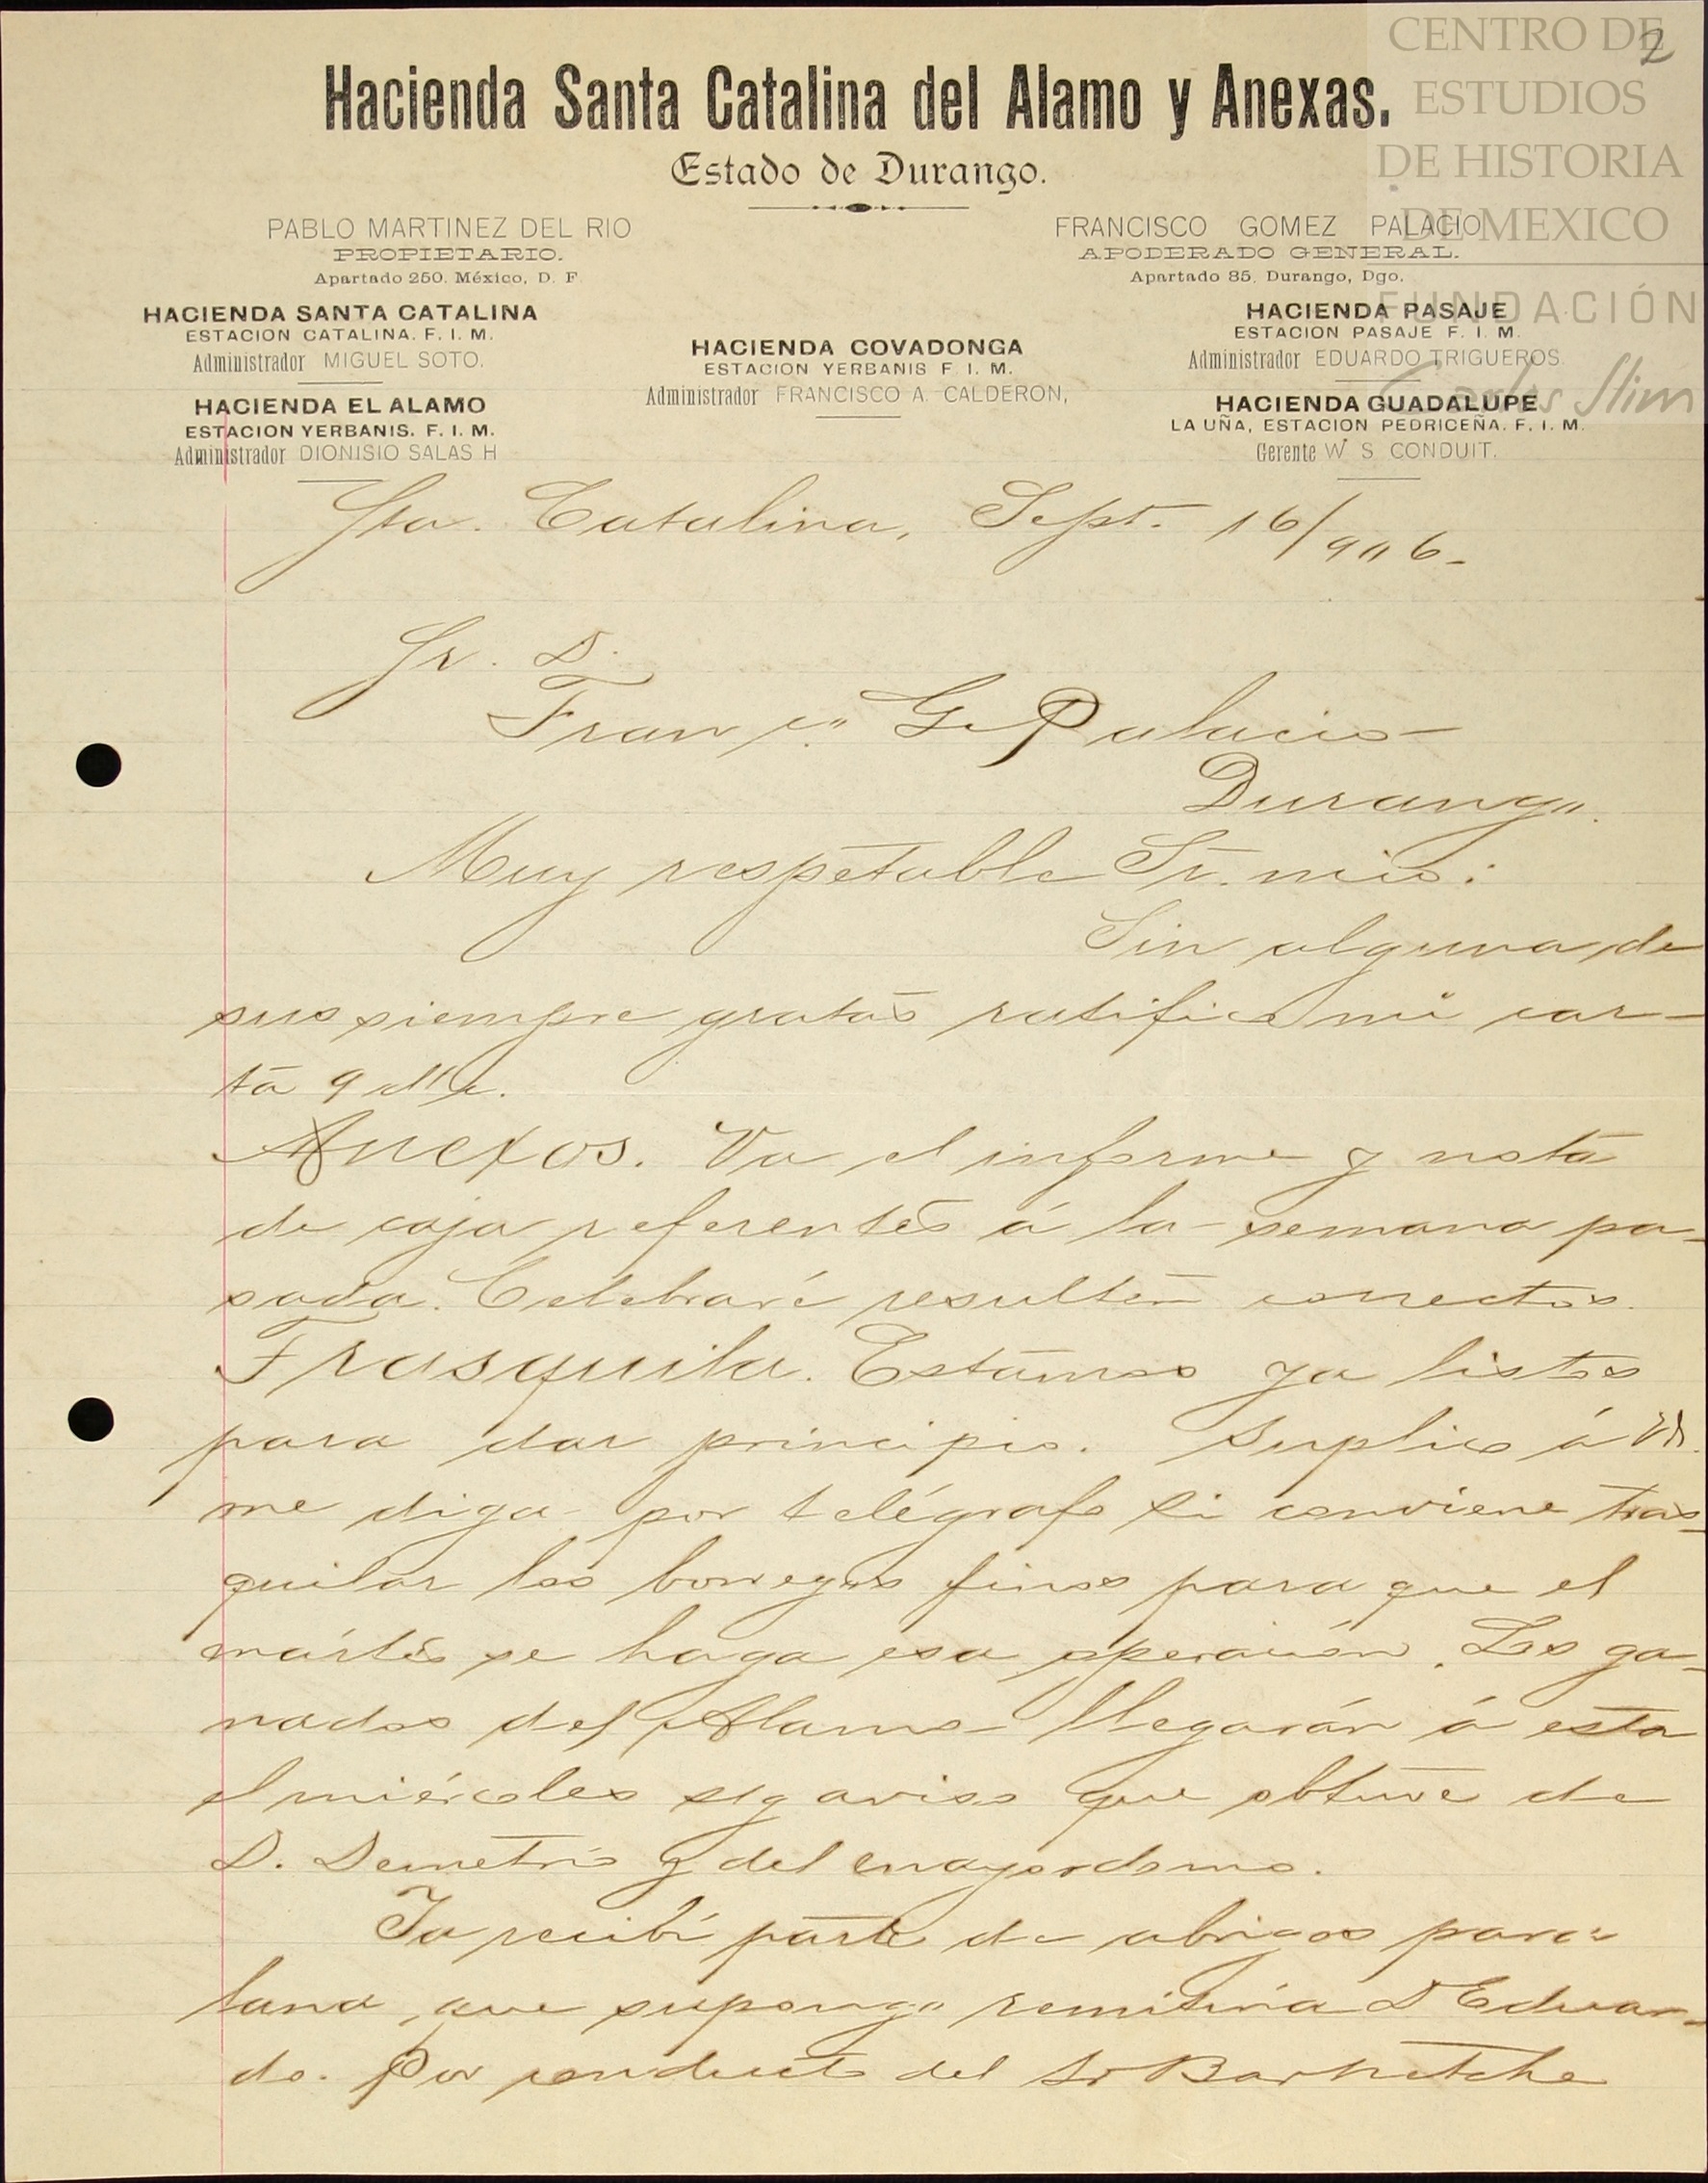 CENTRO DE
ESTUDIOS
DE HISTORIA
DE MEXICO
FUNDACIÓN
Carlos Slim
2
Hacienda Santa Catalina del Alamo y Anexas.
Estado de Durango.
PABLO MARTINEZ DEL RIO
PROPIETARIO.
Apartado 250. México, D. F.
FRANCISCO GOMEZ PALACIO
APODERADO GENERAL.
Apartado 85, Durango, Dgo.
HACIENDA SANTA CATALINA
ESTACION CATALINA. F. I. M.
Administrador MIGUEL SOTO.
HACIENDA EL ALAMO
ESTACION YERBANIS. F. I. M.
Administrador DIONISIO SALAS H
HACIENDA COVADONGA
ESTACION YERBANIS F. I. M.
Administrador FRANCISCO A. CALDERON,
HACIENDA PASAJE
ESTACION PASAJE F. I. M.
Administrador EDUARDO TRIGUEROS.
HACIENDA GUADALUPE
LA UÑA, ESTACION PEDRICEÑA. F. I. M.
Gerente W. S. CONDUIT.
Sta. Catalina, Sept. 16/906.
Sr. D.
Franco. G. Palacio
Durango.
Muy respetable Sr. mio:
Sin alguna de
sus siempre gratas ratifico mi car-
ta 9 dle.
Anexos. Va el informe y nota
de caja referentes á la semana pa-
sada. Celebraré resulten correctos.
Trasquila. Estamos ya listos
para dar principio. Suplico á Vd.
me diga por telégrafo si conviene tras-
quilar los borregos finos para que el
mártes se haga esa operación. Los ga-
nados del Alamo llegarán á esta
el miércoles sg aviso que obtuve de
D. Demetrio y del mayordomo.
Ya recibí parte de abrigos para
lana, que supongo remitiría D Eduar-
do. Por conducto del Sr Barnetche